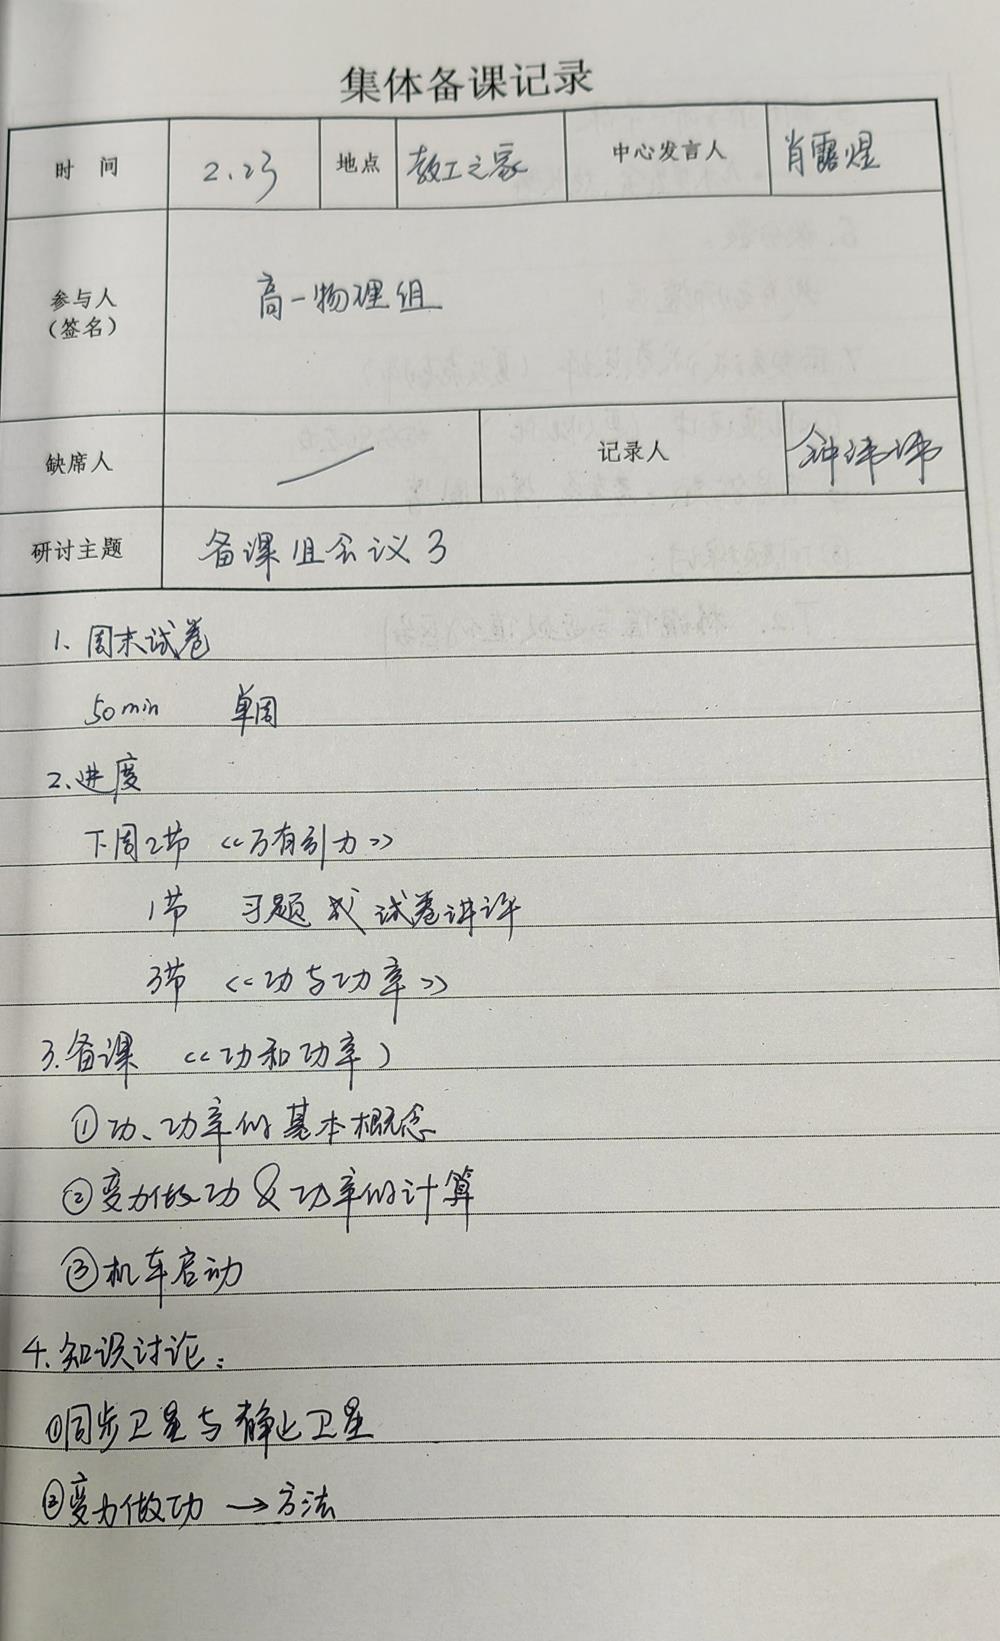 集体备课记录
时 间 2.23 地点 教工之家 中心发言人 肖露煜
参与人
（签名）
高一物理组
缺席人 记录人 钟沛沛
研讨主题 备课组会议3
1. 周末试卷
50min 单周
2. 进度
下周2节 《万有引力》
1节 习题或试卷讲评
3节 《功与功率》
3. 备课 《功和功率）
①功、功率的基本概念
②变力做功 & 功率的计算
③机车启动
4. 知识讨论：
①同步卫星与静止卫星
②变力做功 → 方法